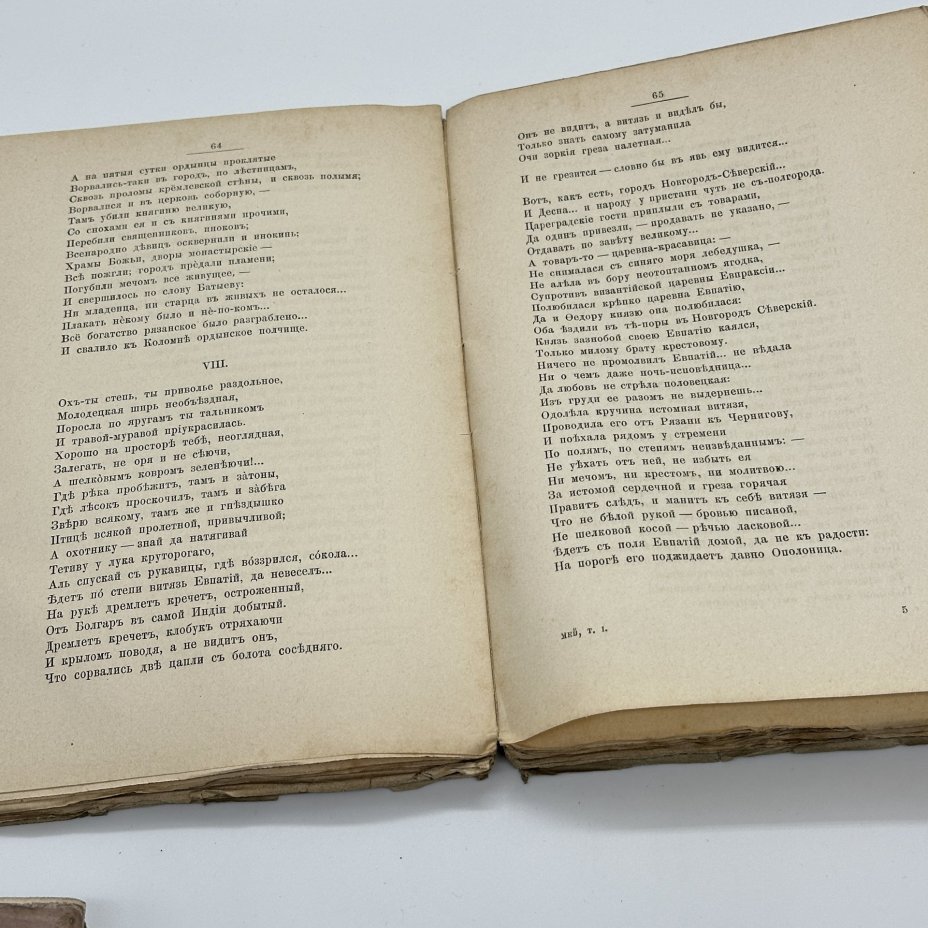 64
А на пятыя сутки ордынцы проклятые
Ворвались-таки въ городъ, по лѣстницамъ,
Сквозь проломы крёмлевской стѣны, и сквозь полымя;
Ворвалися и въ церковь соборную, —
Тамъ убили княгиню великую,
Со снохами ея и съ княгинями прочими,
Перебили священниковъ, иноковъ;
Всенародно дѣвицъ осквернили и инокинь;
Храмы Божьи, дворы монастырскіе —
Всѣ пожгли; городъ предали пламени;
Погубили мечомъ все живущее, —
И свершилось по слову Батыеву:
Ни младенца, ни старца въ живыхъ не осталося...
Плакать нѐкому было и нѐ-по-комъ...
Всё богатство рязанское было разграблено...
И свалило къ Коломнѣ ордынское полчище.
VIII.
Охъ-ты степь, ты приволье раздольное,
Молодецкая ширь необъѣздная,
Поросла по яругамъ ты тальникомъ
И травой-муравой пріукрасилась.
Хорошо на просторѣ тебѣ, неоглядная,
Залегать, не оря и не сѣючи,
А шелко̀вымъ ковромъ зеленѣючи!...
Гдѣ рѣка пробѣжитъ, тамъ и за̀тоны,
Гдѣ лѣсокъ проскочилъ, тамъ и за̀бѣга
Звѣрю всякому, тамъ же и гнѣздышко
Птицѣ всякой пролетной, привычливой;
А охотнику — знай да натягивай
Тетиву у лука круторогаго,
Аль спускай съ рукавицы, гдѣ во́ззрился, со́кола...
Ѣдетъ по́ степи витязь Евпатій, да невеселъ...
На рукѣ дремлетъ кречетъ, остроженный,
Отъ Болгаръ въ самой Индіи добытый.
Дремлетъ кречетъ, клобукъ отряхаючи
И крыломъ поводя, а не видитъ онъ,
Что сорвались двѣ цапли съ болота сосѣдняго.
65
Онъ не видитъ, а витязь и видѣлъ бы,
Только знать самому затуманила
Очи зоркія греза налетная...
И не грезится — словно бы въ явь ему видится...
Вотъ, какъ есть, городъ Новгородъ-Сѣверскій...
И Десна... и народу у пристани чуть не съ-полгорода.
Цареградскіе гости приплыли съ товарами,
Да одинъ привезли, — продавать не указано, —
Отдавать по завѣту великому...
А товаръ-то — царевна-красавица: —
Не снималася съ синяго моря лебедушка, —
Не алѣла въ бору неотоптанномъ ягодка,
Супротивъ византійской царевны Евпраксіи...
Полюбилася крѣпко царевна Евпатію,
Да и Ѳедору князю она полюбилася:
Оба ѣздили въ тѣ-поры въ Новгородъ Сѣверскій.
Князь зазнобой своею Евпатію каялся,
Только милому брату крестовому.
Ничего не промолвилъ Евпатій... не вѣдала
Ни о чемъ даже ночь-исповѣдница...
Да любовь не стрѣла половецкая:
Изъ груди ее разомъ не выдернешь...
Одолѣла кручина истомная витязя,
Проводила его отъ Рязани къ Чернигову,
И поѣхала рядомъ у стремени
По полямъ, по степямъ неизвѣданнымъ: —
Не уѣхать отъ ней, не избыть ея
Ни мечомъ, ни крестомъ, ни молитвою...
За истомой сердечной и греза горячая
Правитъ слѣдъ, и манитъ къ себѣ витязя —
Что не бѣлой рукой — бровью писаной,
Не шелковой косой — рѣчью ласковой...
Ѣдетъ съ поля Евпатій домой, да не къ радости:
На порогѣ его поджидаетъ давно Ополоница.
МЕЙ, Т. I.
5